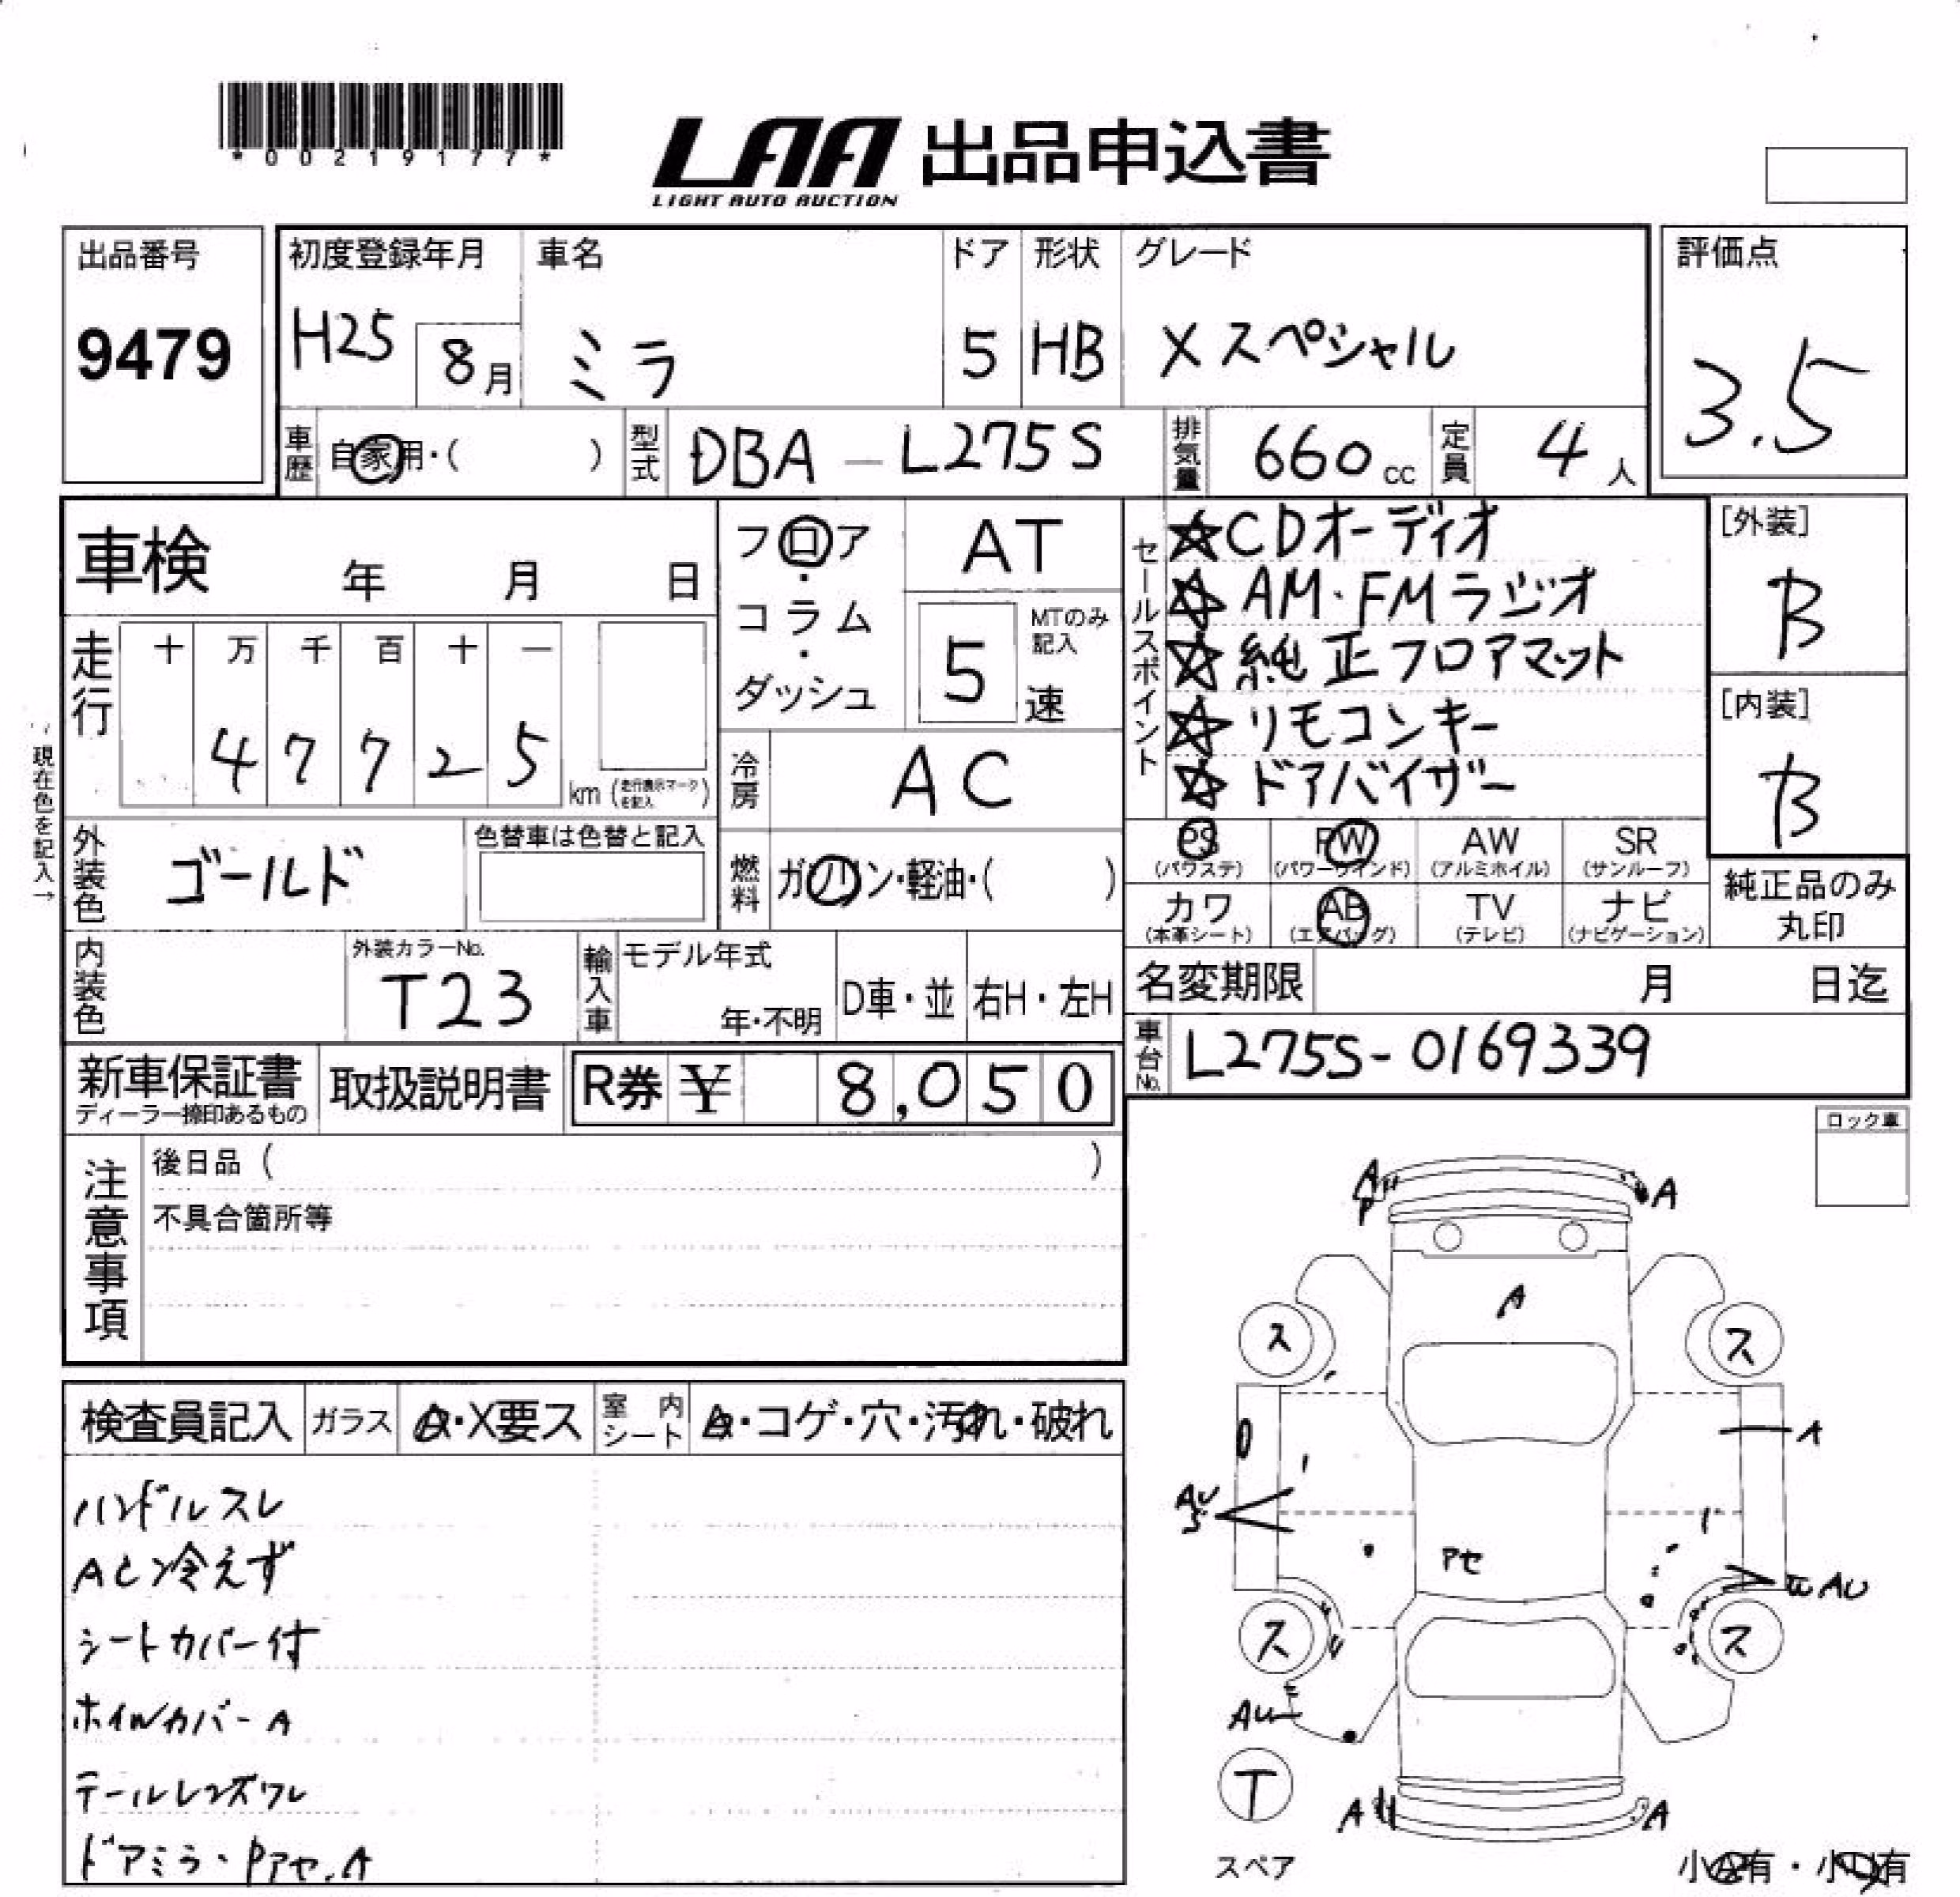 *00219177*
LAA 出品申込書
LIGHT AUTO AUCTION
出品番号
9479
初度登録年月
H25 8月
車名
ミラ
ドア
5
形状
HB
グレード
Xスペシャル
評価点
3.5
車歴
自家用・( )
型式
DBA - L275S
排気量
660cc
定員
4人
車検 年 月 日
フロア・コラム・ダッシュ
AT
MTのみ記入
5速
セールスポイント
☆CDオーディオ
☆AM・FMラジオ
☆純正フロアマット
☆リモコンキー
☆ドアバイザー
[外装]
B
[内装]
B
走行
十 万 千 百 十 一
4 7 7 2 5
km (走行表示マークを記入)
冷房
AC
現在色を記入→
外装色
ゴールド
色替車は色替と記入
燃料
ガソリン・軽油・( )
PS (パワステ)
PW (パワーウインド)
AW (アルミホイル)
SR (サンルーフ)
カワ (本革シート)
AB (エアバッグ)
TV (テレビ)
ナビ (ナビゲーション)
純正品のみ
丸印
内装色
外装カラーNo.
T23
輸入車
モデル年式
年・不明
D車・並
右H・左H
名変期限 月 日迄
車台No.
L275S-0169339
新車保証書
ディーラー捺印あるもの
取扱説明書
R券 ¥ 8,050
ロック車
注意事項
後日品 ( )
不具合箇所等
検査員記入
ガラス
・X要ス
室内シート
・コゲ・穴・汚れ・破れ
ハンドルスレ
AC冷えず
シートカバー付
ホイルカバーA
テールレンズワレ
ドアミラ・Pアセ.A
A
P
A
A
ス
ス
A
AU
S
アセ
AU
ス
ス
AU
T
スペア
A
A
小 有・小 有